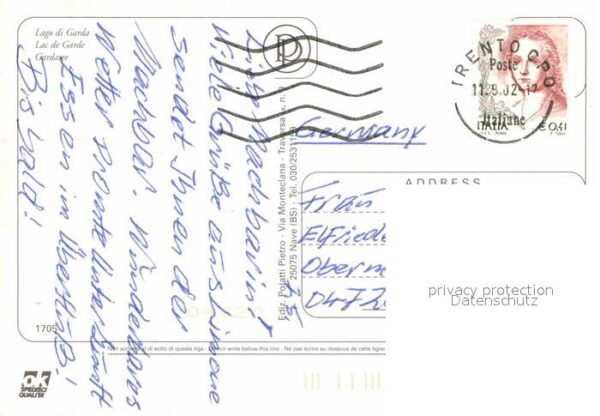 Lago di Garda
Lac de Garde
Gardasee
Liebe Nachbarin!
Viele Grüße aus Limone
sendet Ihnen der
Nachbar. Wunderbares
Wetter, prompte Unterkünft
Essen im Überfluß!
Bis bald!
1705
OK
SPEDISCI
QUALITÀ
Ediz. Pojatti Pietro - Via Monteclana - Traversa n. 9
25075 Nave (BS) - Tel. 030/253
Non scrivere al di sotto di questa riga - Do not write below this line - Ne pas écrire au dessous de cette ligne
TRENTO CPO
11.8.02-17
Poste
Italiane
ITALIA
€ 0,41
Germany
ADDRESS
Frau
Elfriede
Oberm
0472
privacy protection
Datenschutz